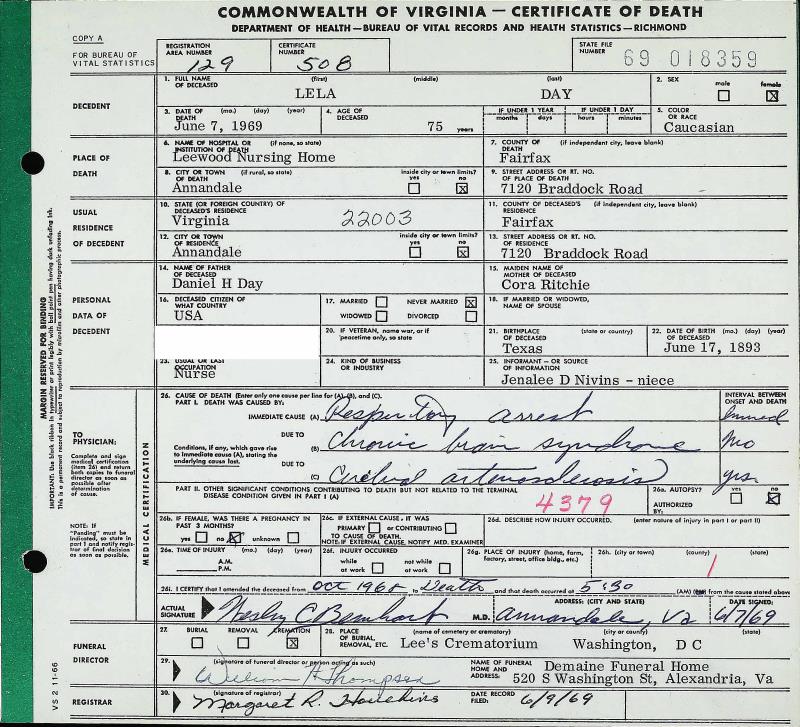 COMMONWEALTH OF VIRGINIA — CERTIFICATE OF DEATH
DEPARTMENT OF HEALTH—BUREAU OF VITAL RECORDS AND HEALTH STATISTICS—RICHMOND
COPY A
FOR BUREAU OF VITAL STATISTICS
REGISTRATION AREA NUMBER 129
CERTIFICATE NUMBER 508
STATE FILE NUMBER 69 018359
DECEDENT
1. FULL NAME OF DECEASED (first) (middle) (last)
LELA DAY
2. SEX male female X
3. DATE OF DEATH (mo.) (day) (year)
June 7, 1969
4. AGE OF DECEASED 75 years
IF UNDER 1 YEAR months days
IF UNDER 1 DAY hours minutes
5. COLOR OR RACE
Caucasian
PLACE OF DEATH
6. NAME OF HOSPITAL OR INSTITUTION OF DEATH (if none, so state)
Leewood Nursing Home
7. COUNTY OF DEATH (if independent city, leave blank)
Fairfax
8. CITY OR TOWN OF DEATH (if rural, so state) inside city or town limits? yes no X
Annandale
9. STREET ADDRESS OR RT. NO. OF PLACE OF DEATH
7120 Braddock Road
USUAL RESIDENCE OF DECEDENT
10. STATE (OR FOREIGN COUNTRY) OF DECEASED'S RESIDENCE
Virginia 22003
11. COUNTY OF DECEASED'S RESIDENCE (if independent city, leave blank)
Fairfax
12. CITY OR TOWN OF RESIDENCE inside city or town limits? yes no X
Annandale
13. STREET ADDRESS OR RT. NO. OF RESIDENCE
7120 Braddock Road
PERSONAL DATA OF DECEDENT
14. NAME OF FATHER OF DECEASED
Daniel H Day
15. MAIDEN NAME OF MOTHER OF DECEASED
Cora Ritchie
16. DECEASED CITIZEN OF WHAT COUNTRY
USA
17. MARRIED NEVER MARRIED X
WIDOWED DIVORCED
18. IF MARRIED OR WIDOWED, NAME OF SPOUSE
20. IF VETERAN, name war, or if peacetime only, so state
21. BIRTHPLACE OF DECEASED (state or country)
Texas
22. DATE OF BIRTH (mo.) (day) (year) OF DECEASED
June 17, 1893
23. USUAL OR LAST OCCUPATION
Nurse
24. KIND OF BUSINESS OR INDUSTRY
25. INFORMANT – OR SOURCE OF INFORMATION
Jenalee D Nivins - niece
MARGIN RESERVED FOR BINDING
IMPORTANT: Use black ribbon in typewriter or print legibly with ball point pen having dark unfading ink.
This is a permanent record and subject to reproduction by microfilm and other photographic process.
TO PHYSICIAN:
Complete and sign medical certification (item 26) and return both copies to funeral director as soon as possible after determination of cause.
NOTE: If "Pending" must be indicated, so state in part 1 and notify registrar of final decision as soon as possible.
MEDICAL CERTIFICATION
26. CAUSE OF DEATH (Enter only one cause per line for (A), (B), and (C).
PART I. DEATH WAS CAUSED BY:
INTERVAL BETWEEN ONSET AND DEATH
IMMEDIATE CAUSE (A) Respiratory arrest
DUE TO
Conditions, if any, which gave rise to immediate cause (A), stating the underlying cause last.
(B) Chronic brain syndrome mo
DUE TO
(C) Cerebral arteriosclerosis yrs.
PART II. OTHER SIGNIFICANT CONDITIONS CONTRIBUTING TO DEATH BUT NOT RELATED TO THE TERMINAL DISEASE CONDITION GIVEN IN PART I (A)
4379
26a. AUTOPSY? yes no X
AUTHORIZED BY:
26b. IF FEMALE, WAS THERE A PREGNANCY IN PAST 3 MONTHS? yes no X unknown
26c. IF EXTERNAL CAUSE, IT WAS PRIMARY or CONTRIBUTING TO CAUSE OF DEATH.
NOTE: IF EXTERNAL CAUSE, NOTIFY MED. EXAMINER
26d. DESCRIBE HOW INJURY OCCURRED. (enter nature of injury in part I or part II)
26e. TIME OF INJURY (mo.) (day) (year) A.M. P.M.
26f. INJURY OCCURRED while at work not while at work
26g. PLACE OF INJURY (home, farm, factory, street, office bldg., etc.)
26h. (city or town) (county) (state)
1
26i. I CERTIFY that I attended the deceased from Oct 1968 to Death and that death occurred at 5:30 (AM) from the cause stated above
ACTUAL SIGNATURE Wesley C Bernhart M.D.
ADDRESS: (CITY AND STATE) Annandale, Va
DATE SIGNED: 6/7/69
FUNERAL DIRECTOR
27. BURIAL REMOVAL CREMATION X
28. PLACE OF BURIAL, REMOVAL, ETC. (name of cemetery or crematory) (city or county) (state)
Lee's Crematorium Washington, D C
29. (signature of funeral director or person acting as such)
William H Thompson
NAME OF FUNERAL HOME AND ADDRESS:
Demaine Funeral Home
520 S Washington St, Alexandria, Va
REGISTRAR
30. (signature of registrar)
Margaret R. Hawkins
DATE RECORD FILED: 6/9/69
VS 2 11-66